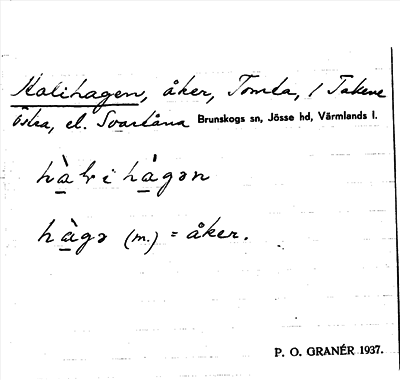 Halihagen, åker, Tomta, 1 Takene
Östra, el. Svartåna Brunskogs sn, Jösse hd, Värmlands l.
hàlri hàgən
hàgə (m.) = åker.
P. O. GRANÉR 1937.